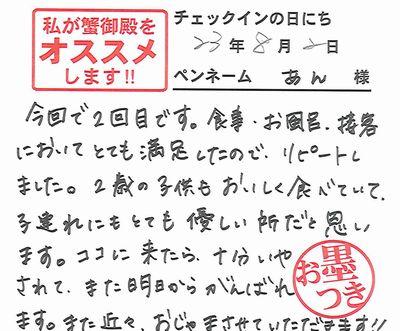 私が蟹御殿を
オススメ
します!!
チェックインの日にち
23年8月2日
ペンネーム あん 様
今回で2回目です。食事・お風呂、接客
においてとても満足したので、リピートし
ました。2歳の子供もおいしく食べていて、
子連れにもとても優しい所だと思い
ます。ココに来たら、十分いや
されて、また明日からがんばれ
ます。また近々、おじゃまさせていただきます!!
お墨
つき